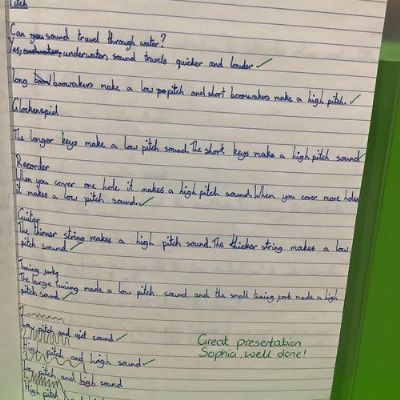 Pitch
Can you sound travel through water?
Yes, underwater, sound travels quicker and louder
long boomwakers make a low pitch and short boomwakers make a high pitch.
Glockenspiel
The longer keys make a low pitch sound. The short keys make a high pitch sound
Recorder
When you cover one hole it makes a high pitch sound. When you cover more holes
it makes a low pitch sound.
Guitar
The thinner string makes a high pitch sound. The thicker string makes a low
pitch sound
Tuning forks
The large tuning made a low pitch sound and the small tuning fork made a high
pitch sound
Low pitch and quiet sound
High pitch and high sound
Low pitch and high sound
High pitch
Great presentation
Sophia, well done!